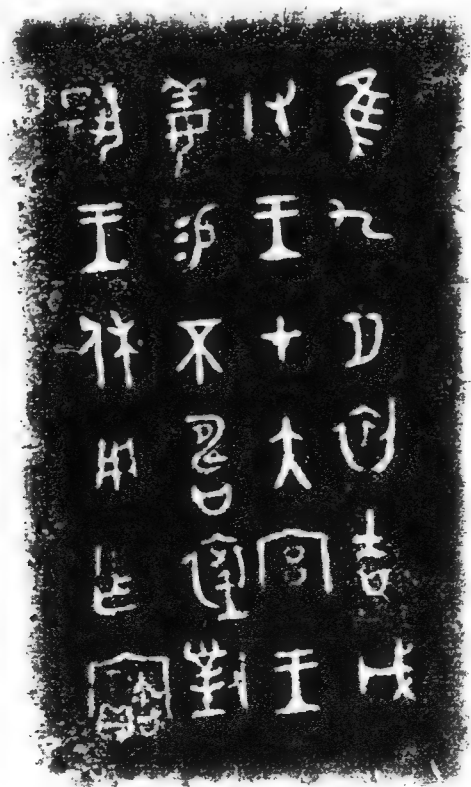 隹九月初吉戊
戌王才大宮王
姜易不壽裘對
揚王休用乍寶